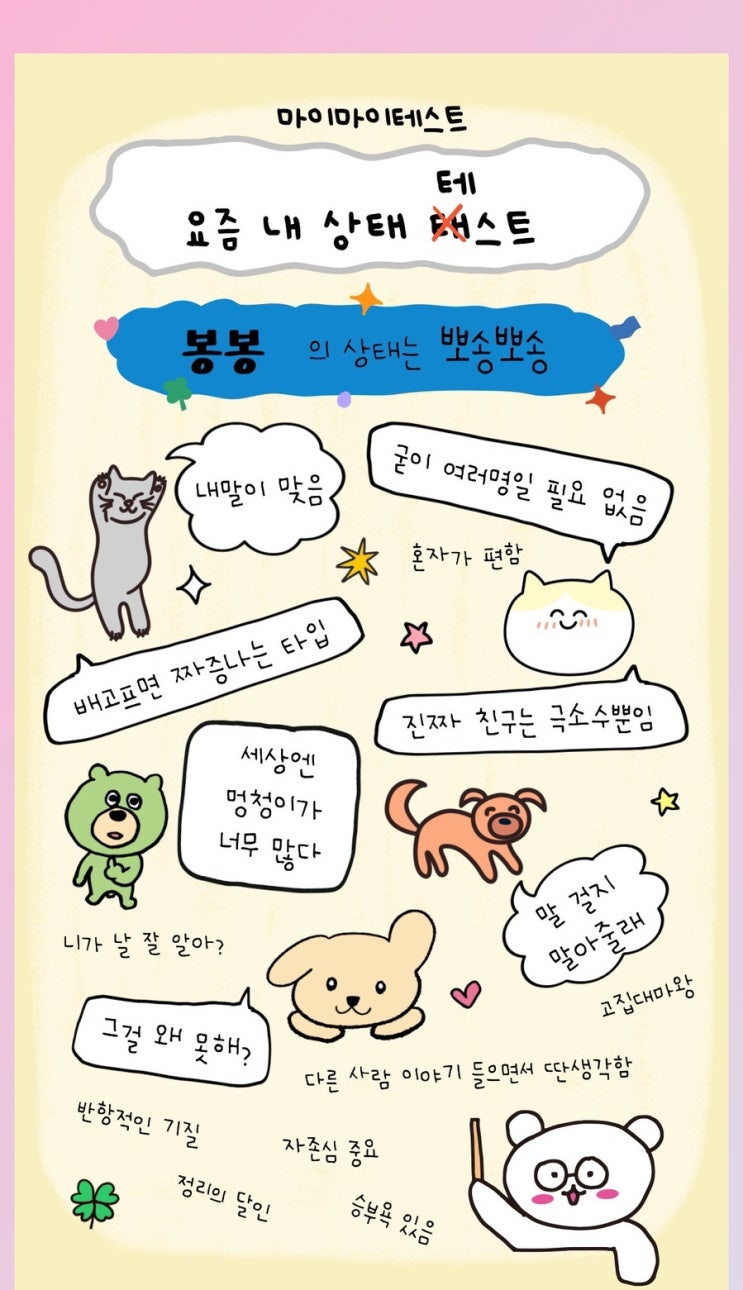 마이마이테스트
테
요즘 내 상태 태스트
봉봉 의 상태는 뽀송뽀송
내말이 맞음
굳이 여러명일 필요 없음
혼자가 편함
배고프면 짜증나는 타입
진짜 친구는 극소수뿐임
세상엔
멍청이가
너무 많다
말 걸지
말아줄래
니가 날 잘 알아?
고집대마왕
그걸 왜 못해?
다른 사람 이야기 들으면서 딴생각함
반항적인 기질
자존심 중요
정리의 달인
승부욕 있음